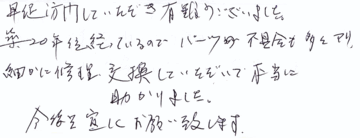 早速訪問していただき有難うございました。
築20年位経っているので パーツの不具合も多々あり、
細かに修理、交換していただいて本当に
助かりました。
今後も宜しくお願い致します。